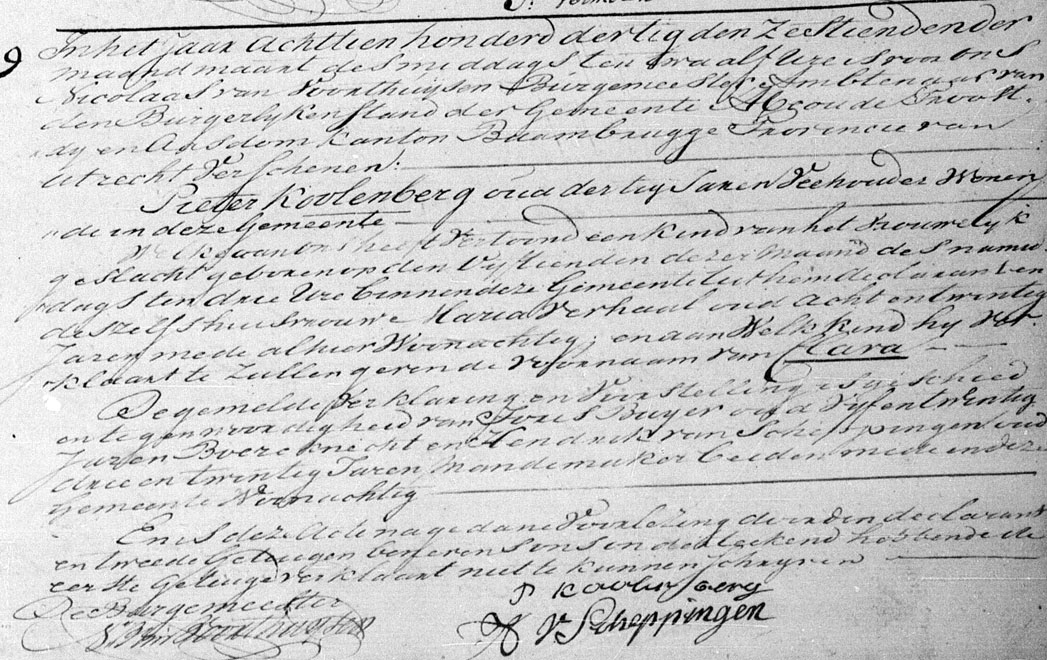 9 In het Jaar Achttien honderd dertig den Zestienden der
maand maart des middags ten twaalf Ure is voor ons
Nicolaas van Voorthuysen Burgemeester Ambtenaar van
den Burgerlyken Stand der Gemeente Abcoude Proost-
dy en Aasdom Kanton Baambrugge Provincie van
Utrecht Verschenen:
Pieter Koolenberg oud dertig Jaren Veehouder Wonen
de in deze Gemeente
Welk aan ons heeft Vertoond een kind van het Vrouwelyk
geslacht geboren op den Vyftienden dezer Maand des namid
dags ten drie Ure binnen deze Gemeente uit hem declarant en
deszelfs huisvrouwe Maria Verhaul oud Acht en twintig
Jaren mede alhier Woonachtig; en aan Welk kind hy Ver-
klaart te Zullen geven de Voornaam van Clara
De gemelde Verklaring en Voorstelling is geschied
in tegenwoordigheid van Buyer oud Vyf en twintig
Jaren Boere knecht en Hendrik van Scheppingen oud
drie en twintig Jaren Mandemaker beiden mede in deze
Gemeente Woonachtig
En is deze Acte na gedane Voorlezing door den declarant
en tweede Getuigen beneven ons onderteekend hebbende de
eerste Getuige verklaart niet te kunnen schryven
De Burgemeester P Koolenberg
N. Van Voorthuysen H V Scheppingen